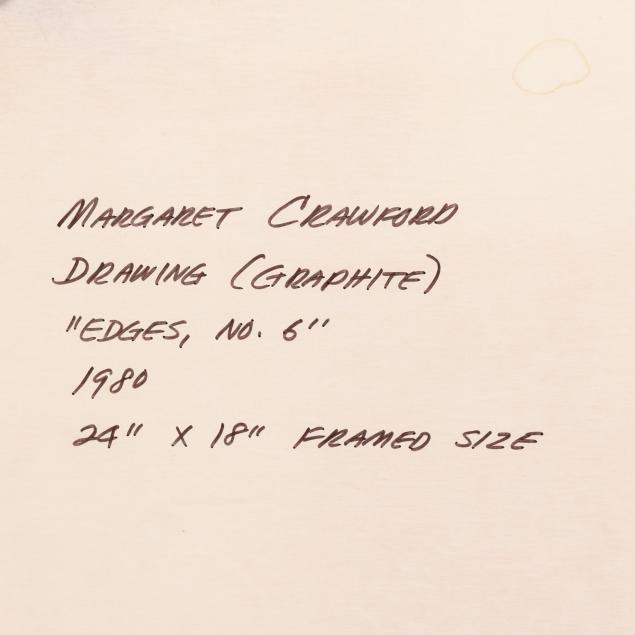 MARGARET CRAWFORD
DRAWING (GRAPHITE)
"EDGES, NO. 6"
1980
24" X 18" FRAMED SIZE